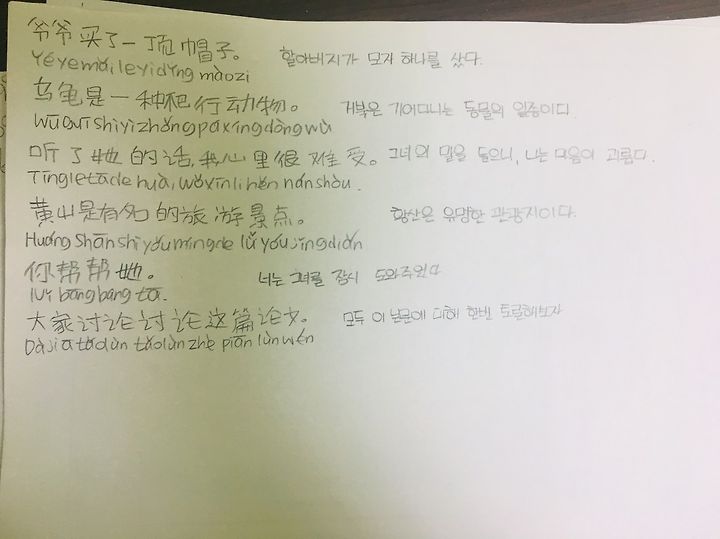 爷爷买了一顶帽子。 할아버지가 모자 하나를 샀다.
Yéyemǎileyìdǐng màozi
乌龟是一种爬行动物。 거북은 기어다니는 동물의 일종이다.
Wūguīshìyìzhǒngpáxíngdòngwù
听了她的话,我心里很难受。 그녀의 말을 들으니, 나는 마음이 괴롭다.
Tīngletādehuà,wǒxīnlǐhěn nánshòu.
黄山是有名的旅游景点。 황산은 유명한 관광지이다.
Huángshānshìyǒumíngde lǚyóujǐngdiǎn
你帮帮她。 너는 그녀를 잠시 도와주렴
bāngbang tā.
大家讨论讨论这篇论文。 모두 이 논문에 대해 한번 토론해보자
Dàjiā tǎolùn tǎolùn zhè piān lùnwén